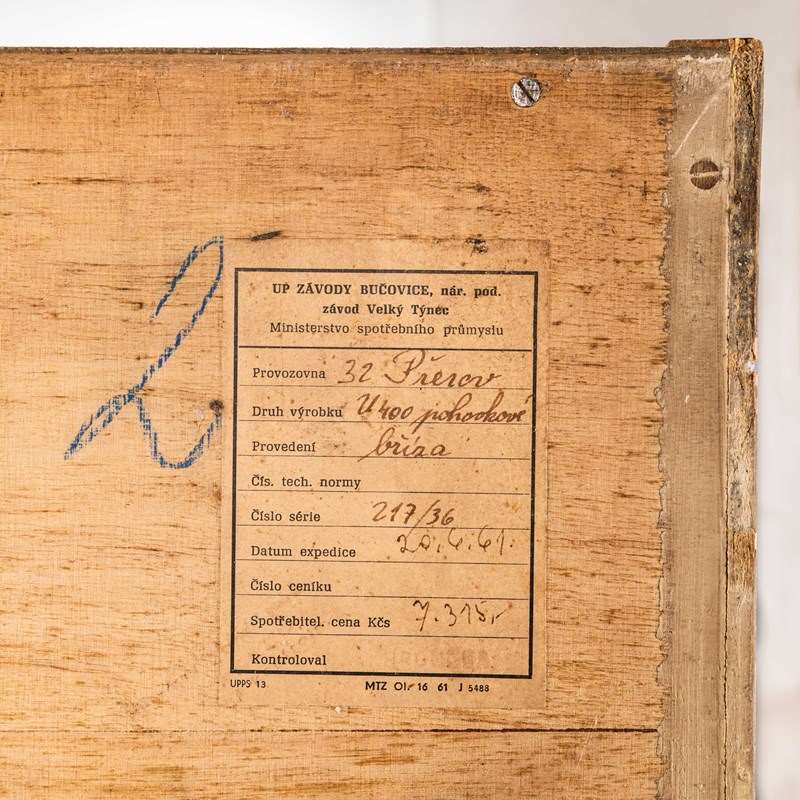 UP ZÁVODY BUČOVICE, nár. pod.
závod Velký Týnec
Ministerstvo spotřebního průmyslu
Provozovna 32 Přerov
Druh výrobku U400 pohovkové
Provedení bříza
Čís. tech. normy
Číslo série 217/36
Datum expedice 20.6.61.
Číslo ceníku
Spotřebitel. cena Kčs 7.315,-
Kontroloval
UPPS 13 MTZ Ol. 16 61 J 5488